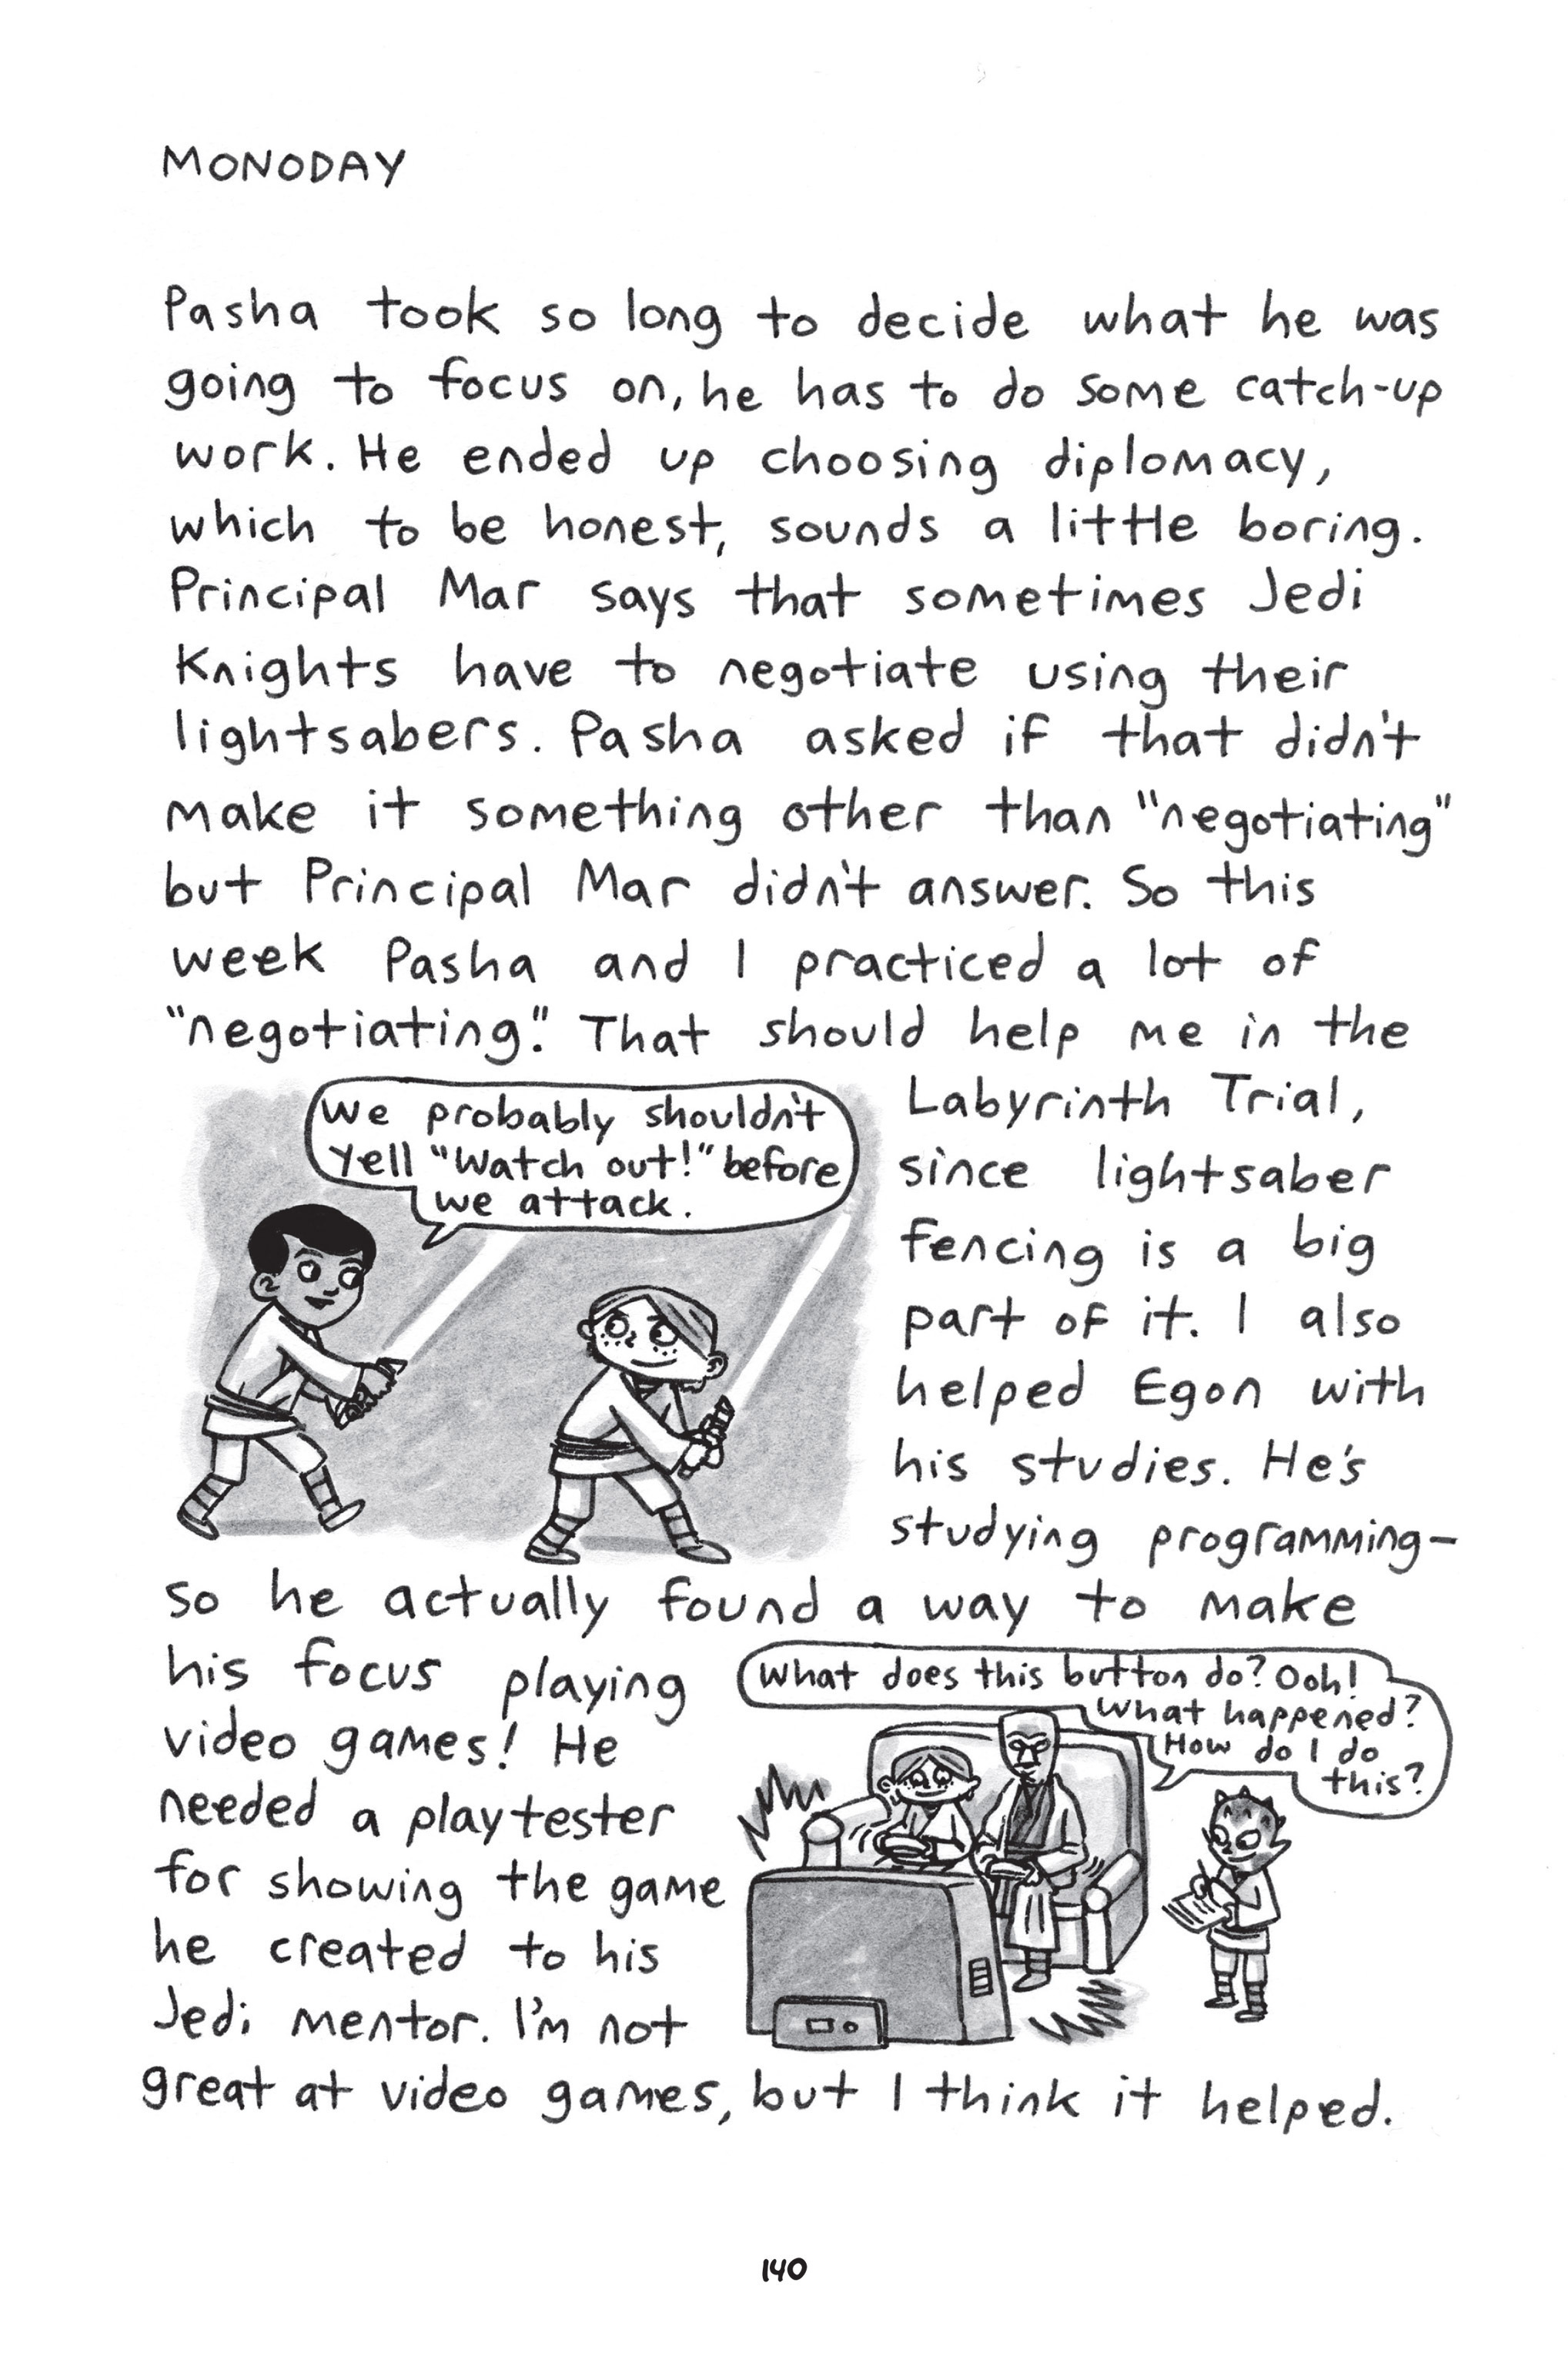 MONODAY
Pasha took so long to decide what he was
going to focus on, he has to do some catch-up
work. He ended up choosing diplomacy,
which to be honest, sounds a little boring.
Principal Mar says that sometimes Jedi
Knights have to negotiate using their
lightsabers. Pasha asked if that didn't
make it something other than "negotiating"
but Principal Mar didn't answer. So this
week Pasha and I practiced a lot of
"negotiating." That should help me in the
We probably shouldn't
yell "Watch out!" before
we attack.
Labyrinth Trial,
since lightsaber
fencing is a big
part of it. I also
helped Egon with
his studies. He's
studying programming-
so he actually found a way to make
his focus playing
video games! He
needed a playtester
for showing the game
he created to his
Jedi mentor. I'm not
What does this button do? Ooh!
What happened?
How do I do
this?
great at video games, but I think it helped.
140